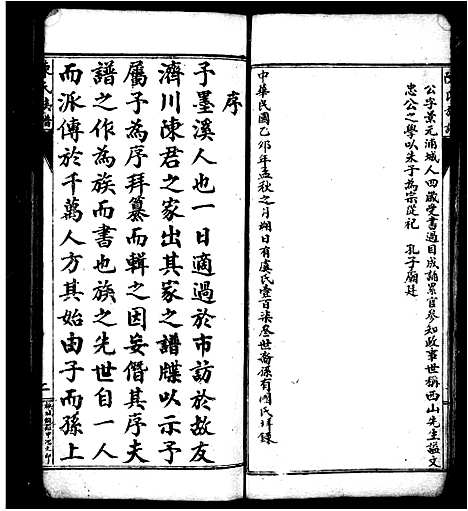 公字景元浦城人四歲受書過目成誦累官參知政事世稱西山先生謚文
忠公之學以朱子為宗從祀 孔子廟廷
中華民國乙卯年孟秋之月朔日有虞氏壹百柒叁世裔孫有國氏拜錄
序
予墨溪人也一日適過於市訪於故友
濟川陳君之家出其家之譜牒以示予
屬予為序拜纂而輯之因妄僭其序夫
譜之作為族而書也族之先世自一人
而派傳於千萬人方其始由子而孫上